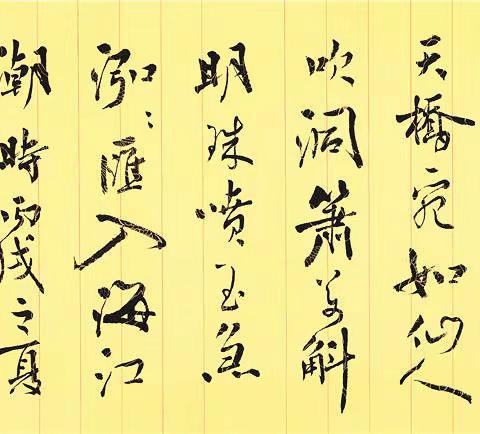 天橋宛如仙人
吹洞簫万斛
明珠噴玉急
泓〻匯入海江
潮時丙戌之夏